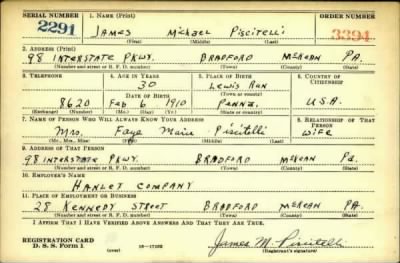 SERIAL NUMBER 1. NAME (Print) ORDER NUMBER
2291 JAMES Michael Piscitelli 3394
(First) (Middle) (Last)
2. ADDRESS (Print)
98 INTERSTATE PKWY. BRADFORD McKEAN PA.
(Number and street or R. F. D. number) (Town) (County) (State)
3. TELEPHONE 4. AGE IN YEARS 5. PLACE OF BIRTH 6. COUNTRY OF CITIZENSHIP
30 Lewis Run
DATE OF BIRTH (Town or county)
8620 Feb 6 1910 Penna. U.S.A.
(Exchange) (Number) (Mo.) (Day) (Yr.) (State or country)
7. NAME OF PERSON WHO WILL ALWAYS KNOW YOUR ADDRESS 8. RELATIONSHIP OF THAT PERSON
Mrs. Faye Marie Piscitelli wife
(Mr., Mrs., Miss) (First) (Middle) (Last)
9. ADDRESS OF THAT PERSON
98 INTERSTATE PKWY. BRADFORD McKean Pa.
(Number and street or R. F. D. number) (Town) (County) (State)
10. EMPLOYER'S NAME
HANLEY COMPANY
11. PLACE OF EMPLOYMENT OR BUSINESS
28 KENNEDY STREET BRADFORD McKEAN PA.
(Number and street or R. F. D. number) (Town) (County) (State)
I AFFIRM THAT I HAVE VERIFIED ABOVE ANSWERS AND THAT THEY ARE TRUE.
REGISTRATION CARD James M. Piscitelli
D. S. S. Form 1 (over) (Registrant's signature)